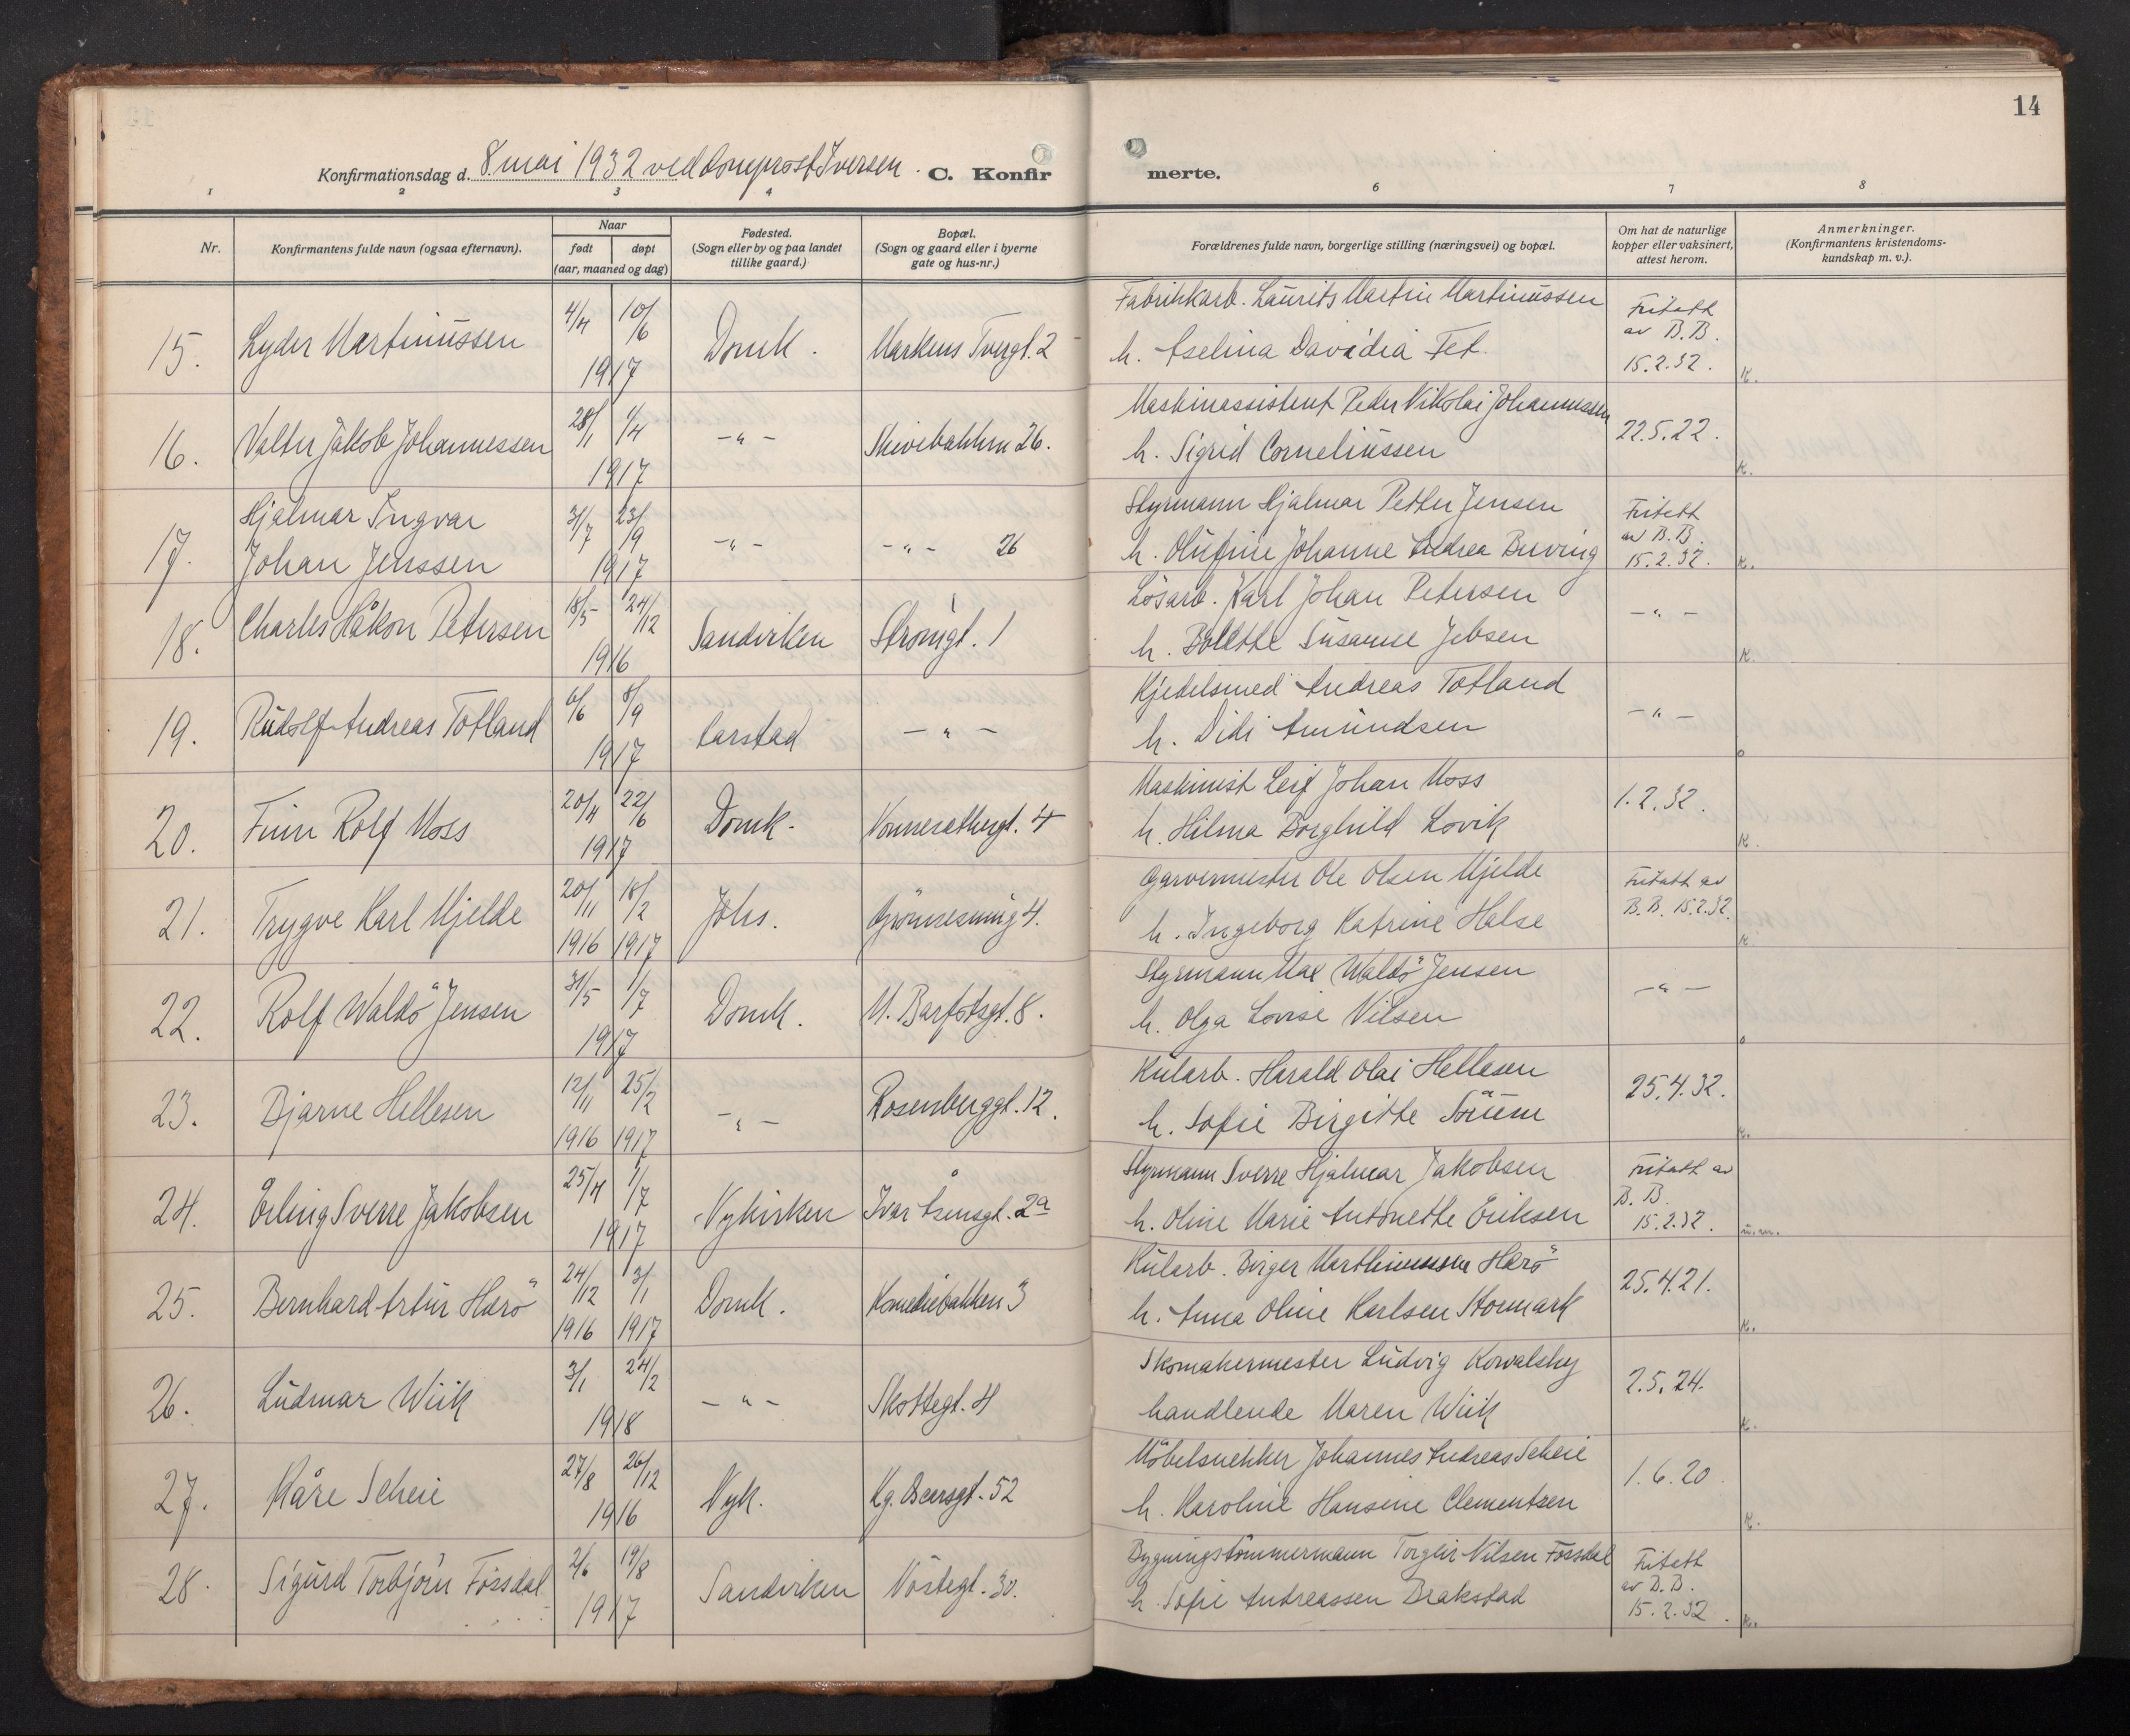 14
Konfirmationsdag d. 8. mai 1932 ved domprost Iversen. C. Konfirmerte.
1 2 3 4 6 7 8
Nr.
Konfirmantens fulde navn (ogsaa efternavn).
Naar
født døpt
(aar, maaned og dag)
Fødested.
(Sogn eller by og paa landet
tillike gaard.)
Bopæl.
(Sogn og gaard eller i byerne
gate og hus-nr.)
Forældrenes fulde navn, borgerlige stilling (næringsvei) og bopæl.
Om hat de naturlige
kopper eller vaksinert,
attest herom.
Anmerkninger.
(Konfirmantens kristendoms-
kundskap m. v.).
15. Lyder Martinussen 4/4 10/6 1917 Domk. Markens Tvergt. 2
Fabrikkarb. Laurits Martin Martinussen
h. Aselina Davidia Tet.
Fritatt
av B.B.
15.2.32. K.
16. Valter Jakob Johannessen 28/1 1/4 1917 -"- Skivebakken 26.
Maskinassistent Peder Nikolai Johannessen
h. Sigrid Corneliussen
22.5.22. K.
17. Hjalmar Ingvar
Johan Jenssen 31/7 23/9 1917 -"- -"- 26
Styrmann Hjalmar Petter Jensen
h. Olufine Johanne Andrea Buving
Fritatt
av B.B.
15.2.32. K.
18. Charles Håkon Petersen 18/5 24/12 1916 Sandviken Strømgt. 1
Løsarb. Karl Johan Petersen
h. Bolette Susanne Jebsen
-"- K.
19. Rudolf Andreas Totland 6/6 8/9 1917 Aarstad -"-
Kjedelsmed Andreas Totland
h. Didi Amundsen
-"- o
20. Finn Rolf Moss 20/4 22/6 1917 Domk. Nonnesetergt. 4
Maskinist Leif Johan Moss
h. Hilma Borghild Lovik
1.2.32. K.
21. Trygve Karl Mjelde 20/11 18/2 1916 1917 Johs. Grønnesmug 4.
Garvermester Ole Olsen Mjelde
h. Ingeborg Katrine Halse
Fritatt av
B.B. 15.2.32. K
22. Rolf Waldö Jensen 31/5 1/7 1917 Domk. N. Barfotsgt. 8.
Styrmann Max Waldö Jensen
h. Olga Lovise Nilsen
-"- o
23. Bjarne Hellesen 12/11 25/2 1916 1917 -"- Rosenberggt. 12.
Kularb. Harald Olai Hellesen
h. Sofie Birgitte
25.4.32. K.
24. Erling Sverre Jakobsen 25/4 1/7 1917 Nykirken Ivar Åsensgt. 2a
Styrmann Sverre Hjalmar Jakobsen
h. Oline Marie Antonette Eriksen
Fritatt av
B.B.
15.2.32. u.m.
25. Bernhard Artur Herö 24/12 3/1 1916 1917 Domk. Komediebakken 3
Kularb. Birger Marthinussen Herö
h. Anna Oline Karlsen Stormark
25.4.21. K.
26. Ludmar Wiik 3/1 24/2 1918 -"- Skottegt. 4
Skomakermester Ludvig Kowalsky
handlende Maren Wiik
2.5.24. K.
27. Kåre Scheie 27/8 26/12 1916 Nyk. Kg. Oscarsgt. 52
Möbelsnekker Johannes Andreas Scheie
h. Karoline Hansine Clementsen
1.6.20 K.
28. Sigurd Torbjörn Fossdal 2/6 19/8 1917 Sandviken Nöstegt. 30.
Bygningstömmermann Torgeir Nilsen Fossdal
h. Sofie Andreassen Brakstad
Fritatt
av B.B.
15.2.32. K.